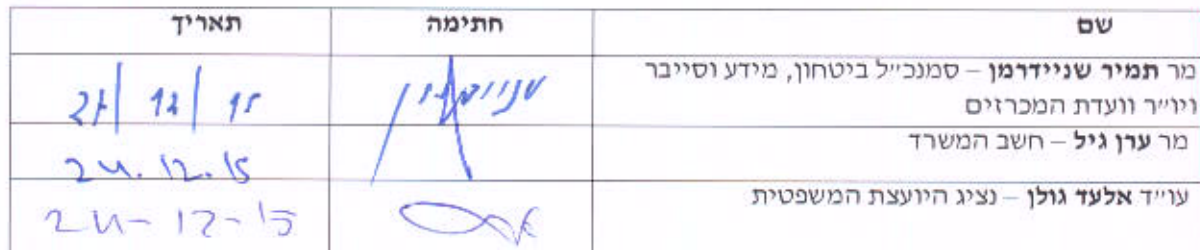 שם חתימה תאריך
מר תמיר שניידרמן – סמנכ״ל ביטחון, מידע וסייבר
ויו״ר וועדת המכרזים
27/12/15
מר ערן גיל – חשב המשרד 24.12.15
עו״ד אלעד גולן – נציג היועצת המשפטית 24-12-15